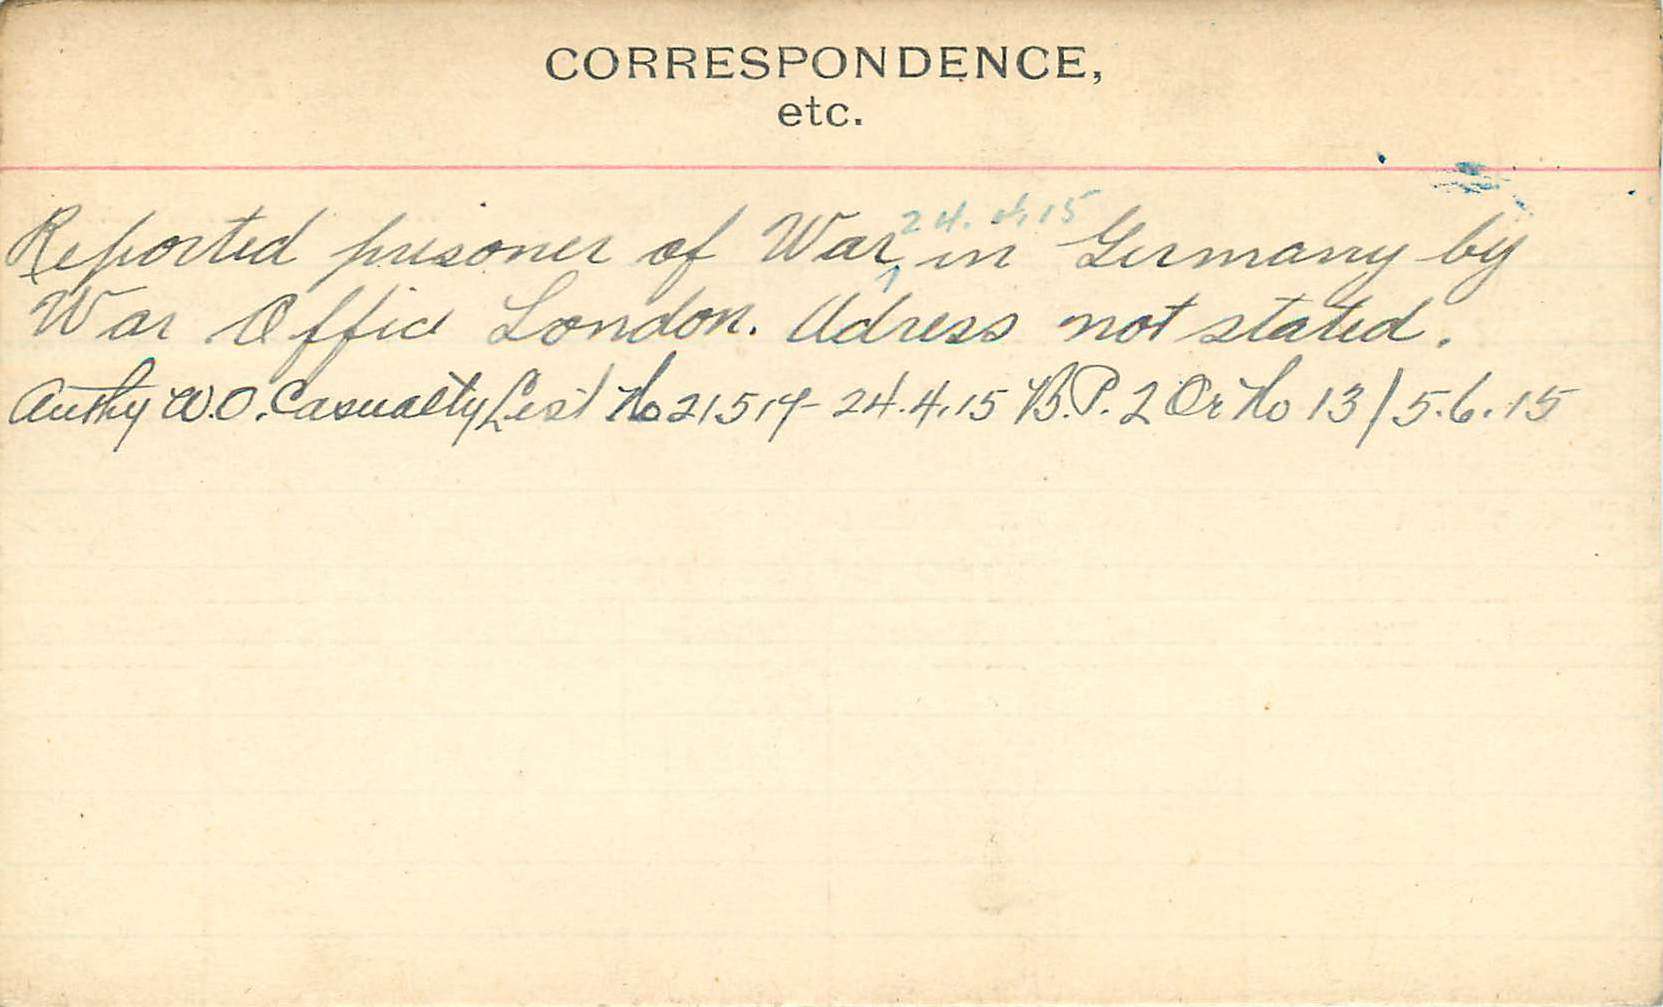 CORRESPONDENCE,
etc.
24.4.15
Reported prisoner of War in Germany by
War Office London. Adress not stated.
Authy W.O. Casualty List No 24.4.15 B.P. 2 Or No 13/5.6.15